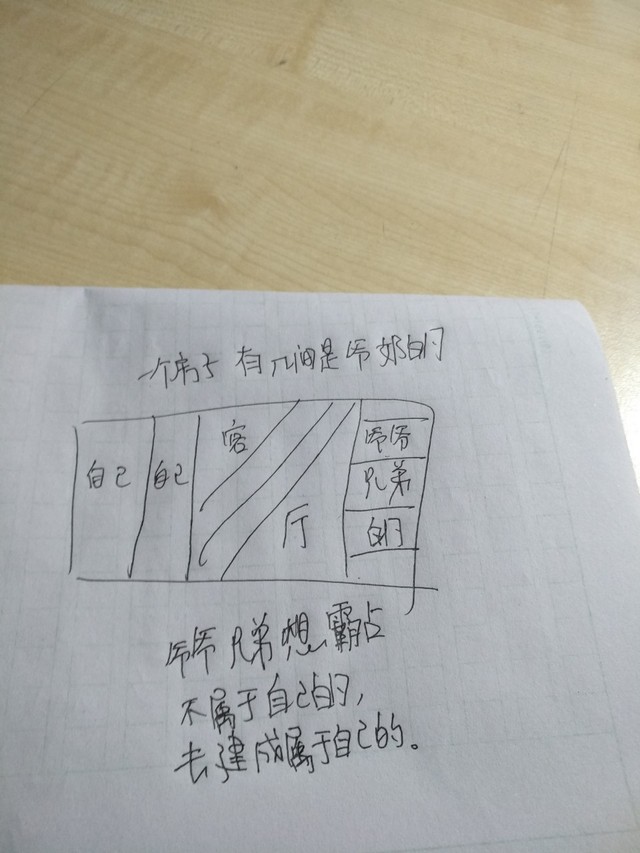 一个弟子有几间是爷爷的
自己 自己 客 厅 爷爷
兄弟
的
爷爷兄弟想霸占
不属于自己的,
去建成属于自己的。